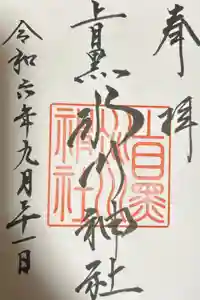 奉拝
上目黒氷川神社
令和六年九月二十一日
上目黒
氷川
神社